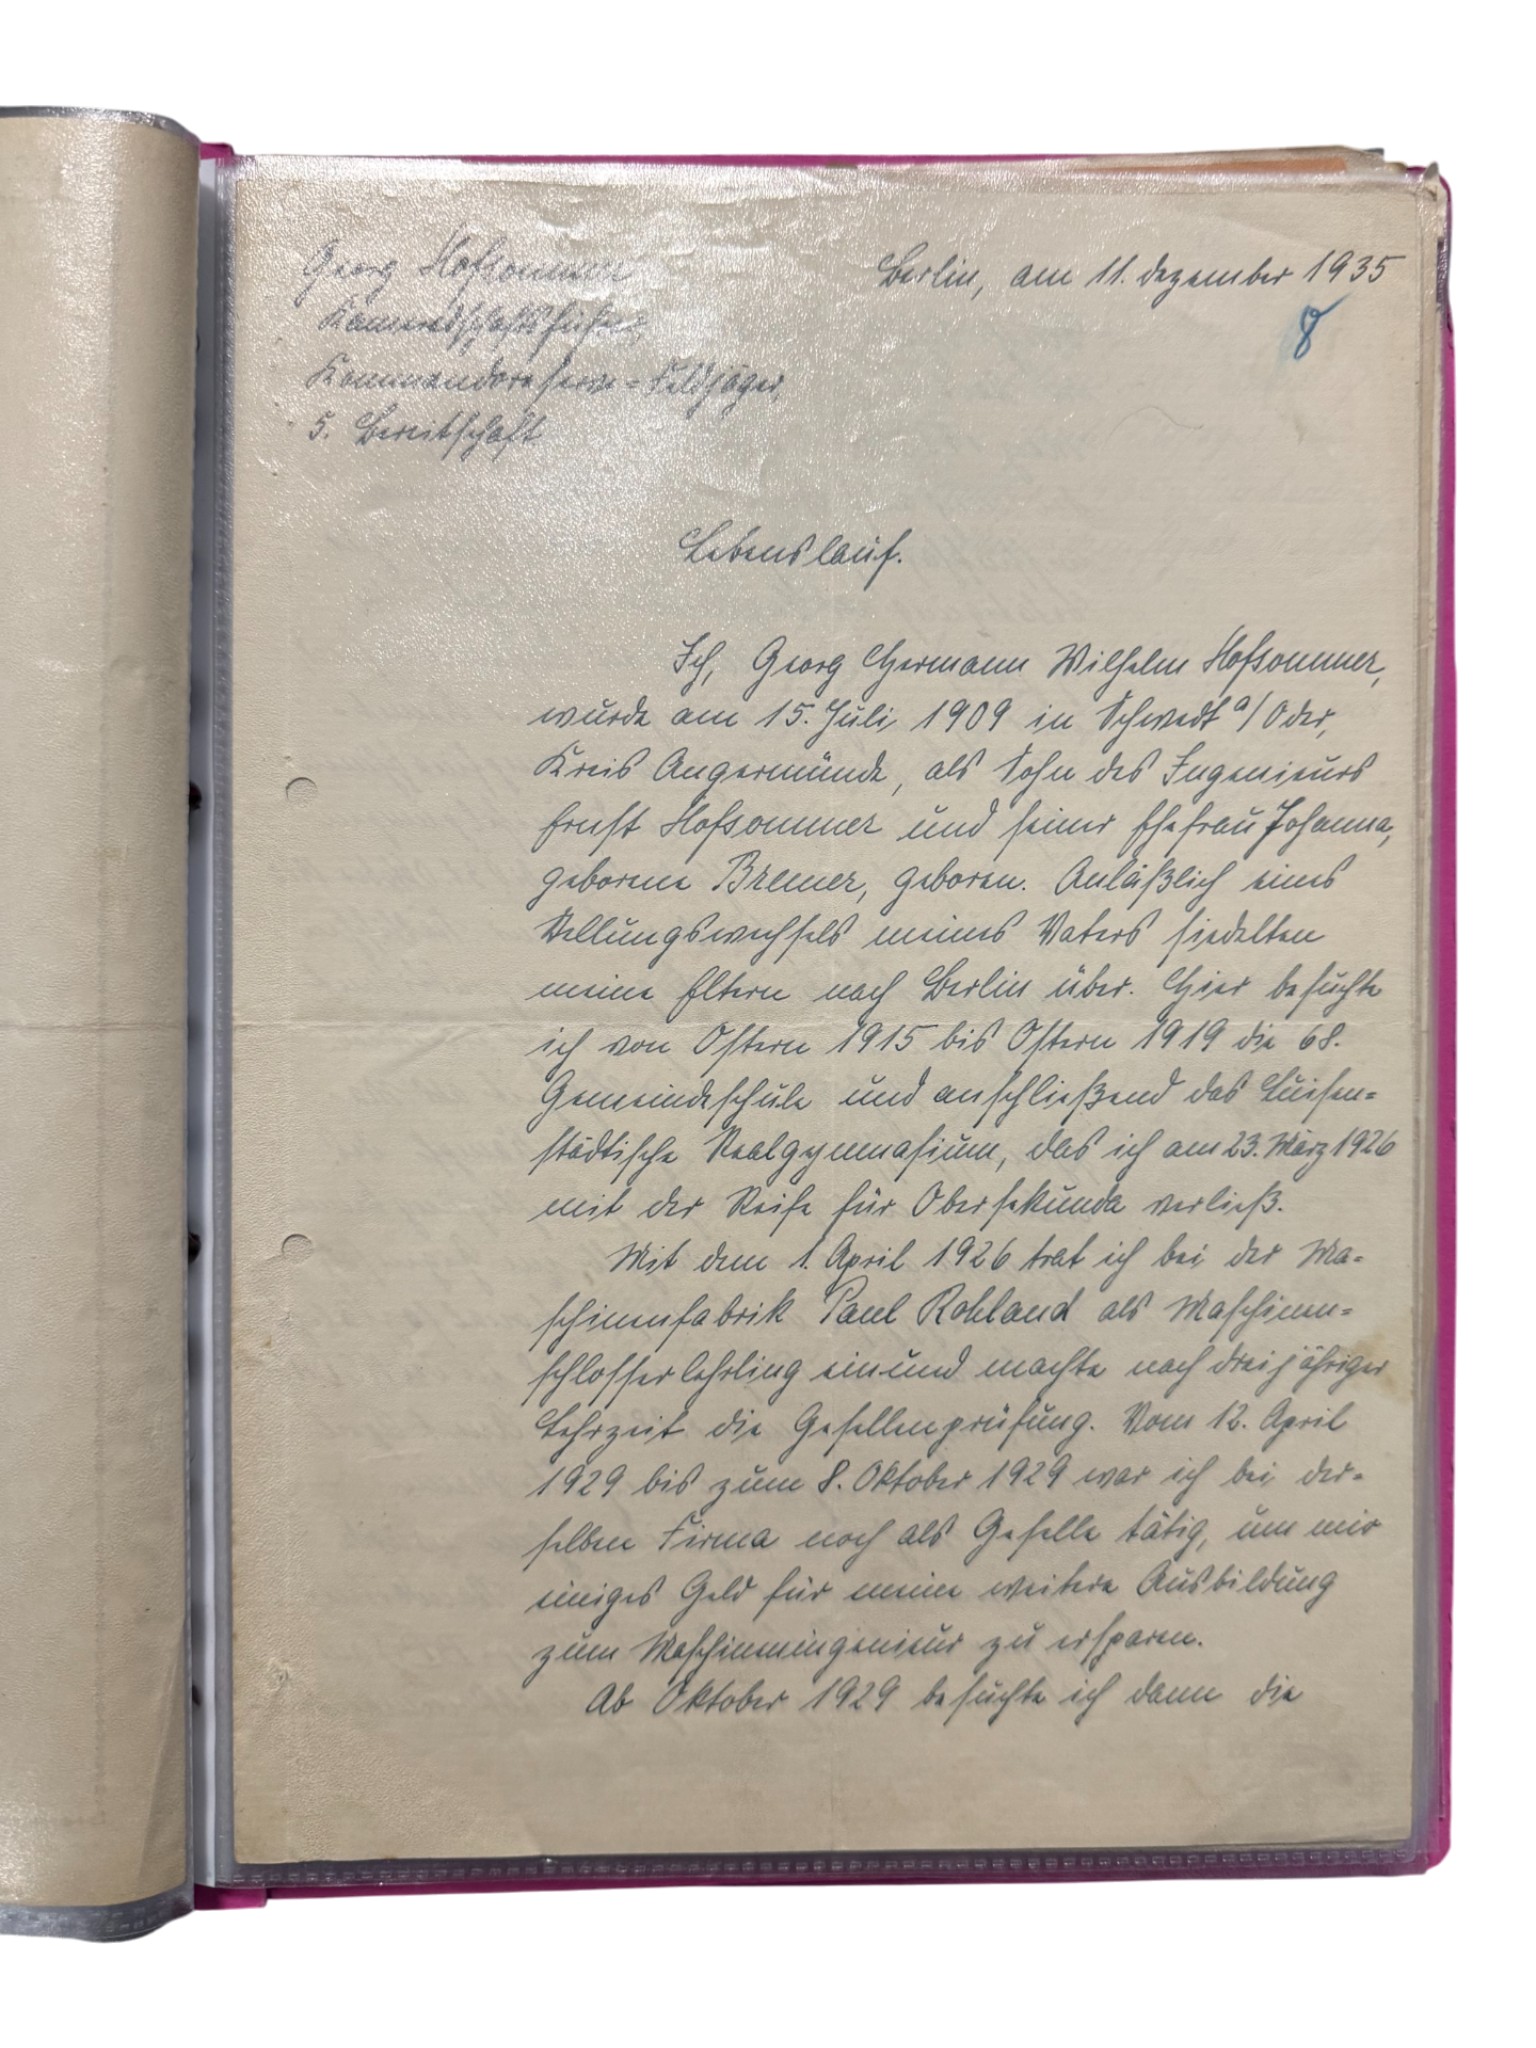 Georg Hofsommer
Kameradschaftsführer,
Kommandoreserve-Feldjäger,
5. Bereitschaft
Berlin, am 11. Dezember 1935
8
Lebenslauf.
Ich, Georg Hermann Wilhelm Hofsommer,
wurde am 15. Juli 1909 in Schwedt a/Oder,
Kreis Angermünde, als Sohn des Ingenieurs
Ernst Hofsommer und seiner Ehefrau Johanna,
geborene Bremer, geboren. Anläßlich eines
Stellungswechsels meines Vaters siedelten
meine Eltern nach Berlin über. Hier besuchte
ich von Ostern 1915 bis Ostern 1919 die 68.
Gemeindeschule und anschließend das Luisen=
städtische Realgymnasium, das ich am 23. März 1926
mit der Reife für Obersekunda verließ.
Mit dem 1. April 1926 trat ich bei der Ma=
schinenfabrik Paul Rohland als Maschinen=
schlosserlehrling ein und machte nach dreijähriger
Lehrzeit die Gesellenprüfung. Vom 12. April
1929 bis zum 8. Oktober 1929 war ich bei der=
selben Firma noch als Geselle tätig, um mir
einiges Geld für meine weitere Ausbildung
zum Maschineningenieur zu ersparen.
Ab Oktober 1929 besuchte ich dann die